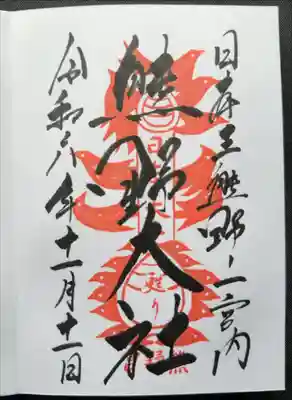 日本三熊野ノ一宮内
熊野大社
令和六年十一月十一日
甦り